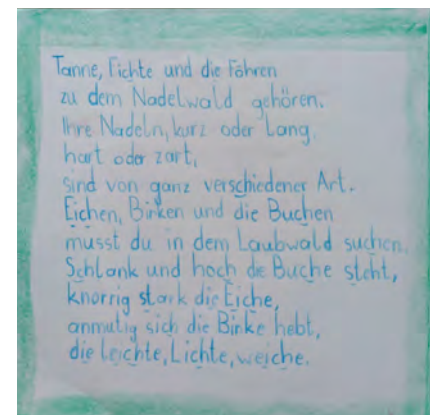 Tanne, Fichte und die Föhren
zu dem Nadelwald gehören.
Ihre Nadeln, kurz oder Lang,
hart oder zart,
sind von ganz verschiedener Art.
Eichen, Birken und die Buchen
musst du in dem Laubwald suchen.
Schlank und hoch de Buche steht,
knorrig stark die Eiche,
anmutig sich die Birke hebt,
die leichte, Lichte, weiche.